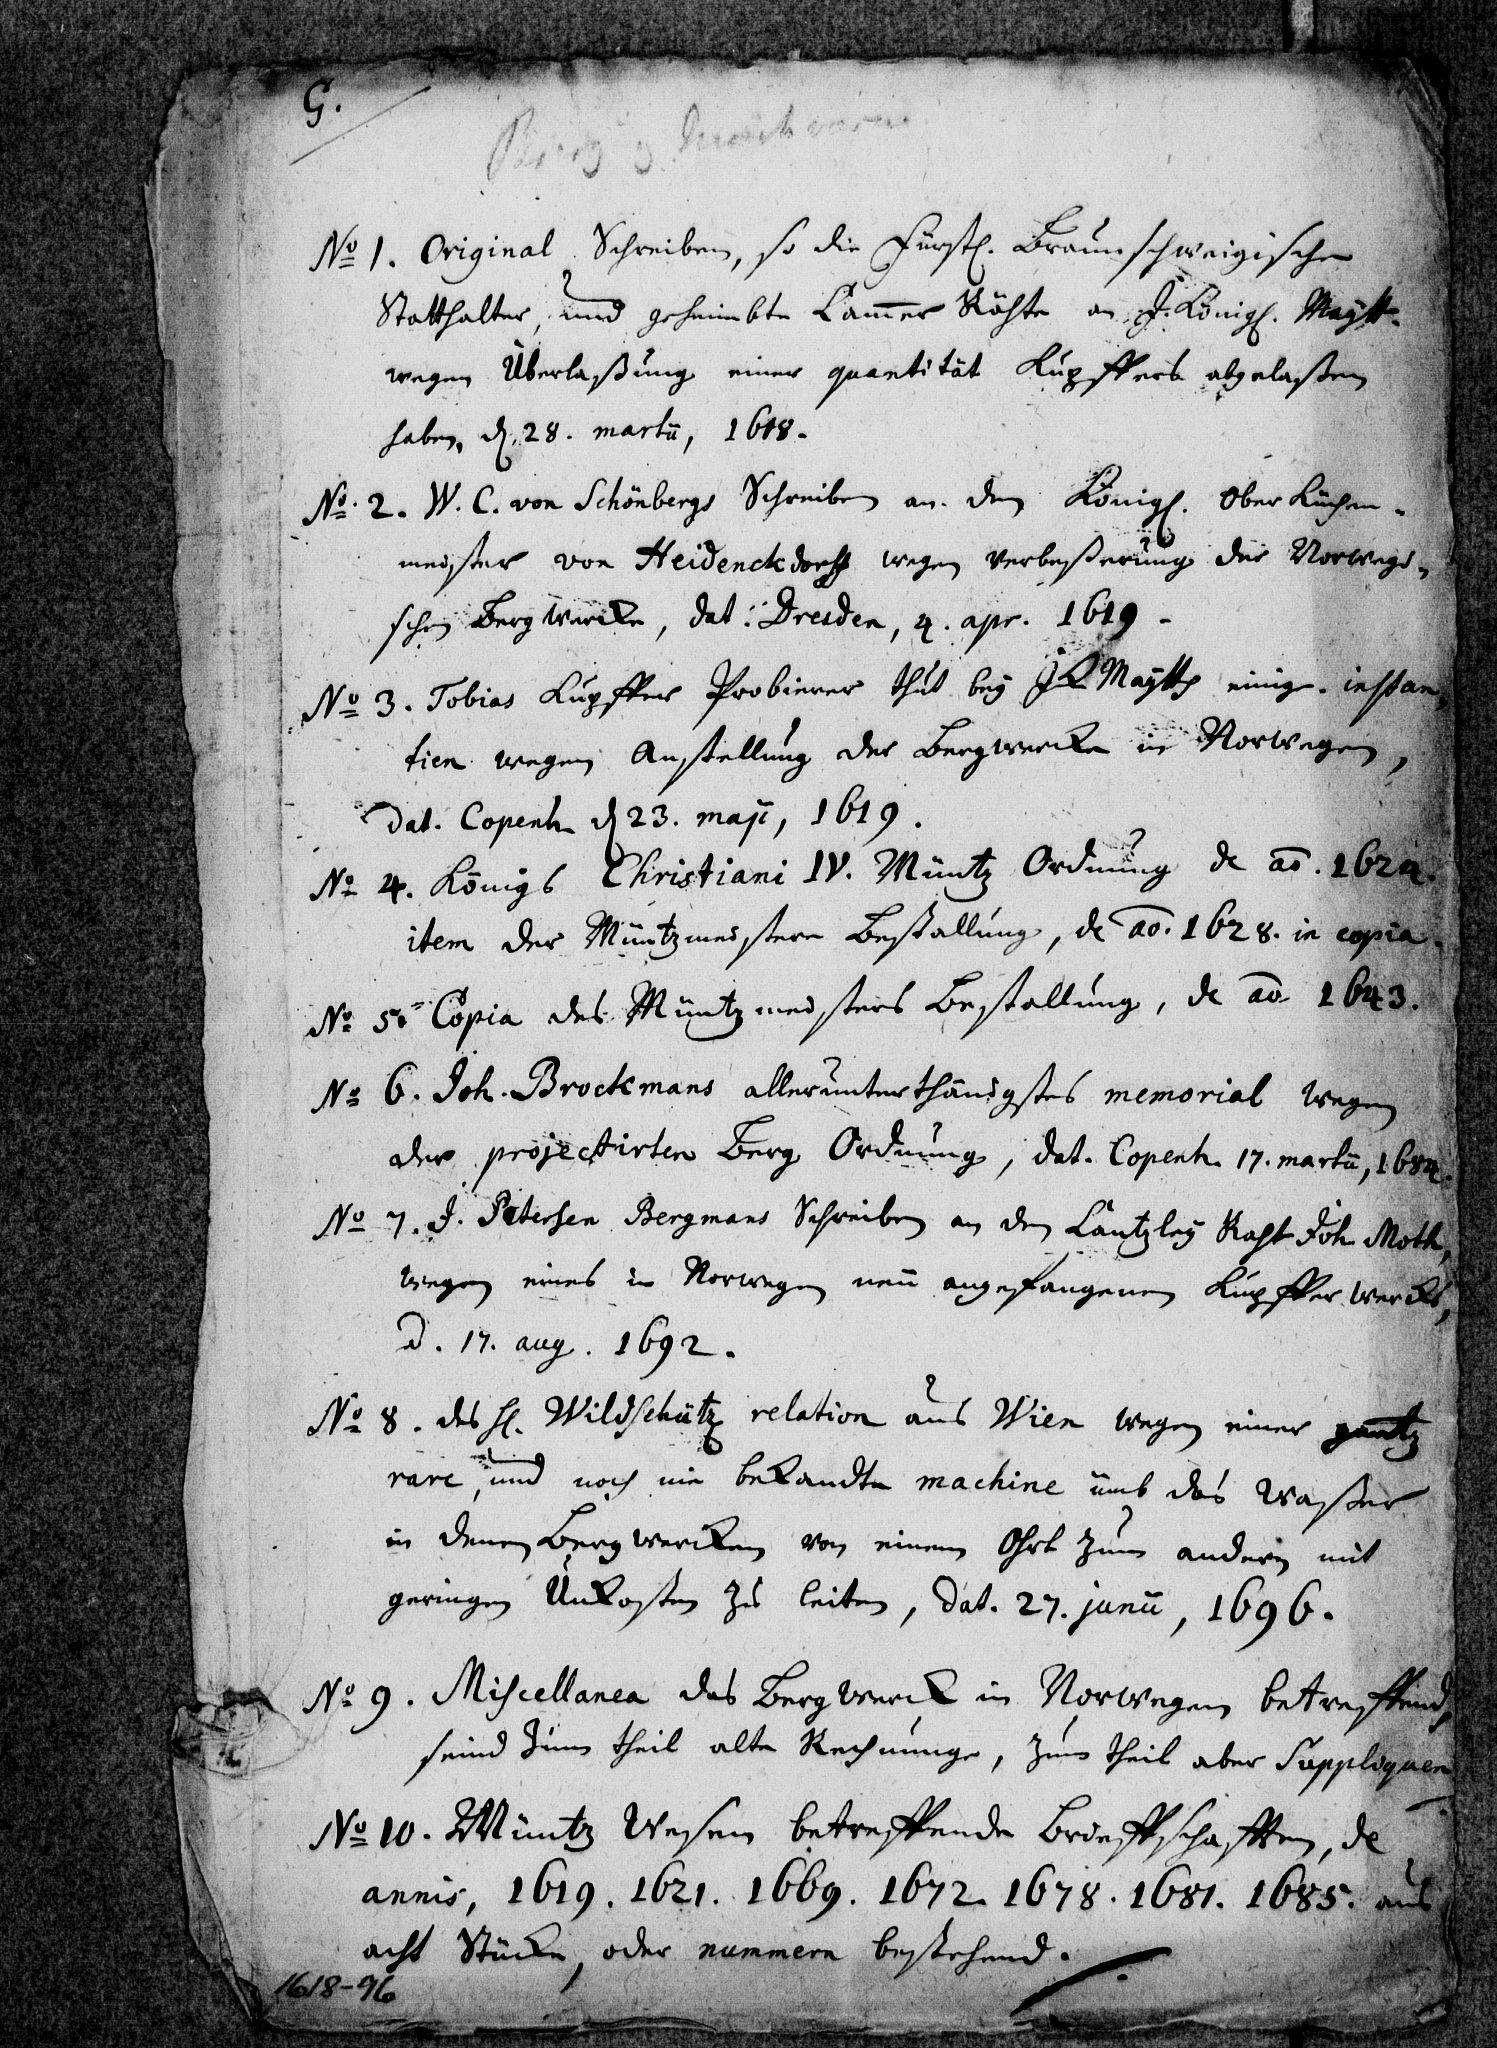 G.
No 1. Original Schreiben, so die Fürstl. Braunschweigische
Statthalter, und geheimbte Cammer Rähte an I. Königl. Maÿtt.
wegen Überlaßung einer quantität Kupffers abgelaßen
haben, d. 28. martii, 1618.
No. 2. W. C. von Schönbergs Schreiben an den Königl. Ober Küchen-
meister von Heidenckdorff wegen verbeßerung der Norwegi-
schen Bergwercke, dat: Dresden, 4. apr. 1619.
No 3. Tobias Kupffer Probierer thut beÿ I K Maÿtt einige instan-
tien wegen Anstellung der Bergwercke in Norwegen,
dat. Copenh. d 23. maji, 1619.
No 4. Königs Christiani IV. Müntz Ordnung de ao. 1624.
item der Müntzmeistere Bestallung, de ao. 1628. in copia.
No 5. Copia des Müntzmeisters Bestallung, de ao 1643.
No 6. Joh. Brockmans allerunterthänigstes memorial wegen
der projectirten Berg Ordnung, dat. Copenh. 17. martii, 1684.
No 7. J. Petersen Bergmans Schreiben an den Cantzleÿ Raht Joh Moth,
wegen eines in Norwegen neu angefangenen Kupffer wercks,
d. 17. aug. 1692.
No 8. des H. Wildschütz relation aus Wien wegen einer gantz
rare, und noch nie bekandte machine umb das Waßer
in denen Bergwercken von einem Ohrt zum andern mit
geringen Unkosten zu leiten, dat. 27. janii, 1696.
No 9. Miscellanea das Bergwerck in Norwegen betreffend,
seind zum theil alte Rechnunge, zum theil aber Suppliquen
No 10. Müntz Wesen betreffende Brieffschafften, de
annis, 1619. 1621. 1669. 1672. 1678. 1681. 1685. aus
acht Stücke, oder nummern bestehend.
1618-96